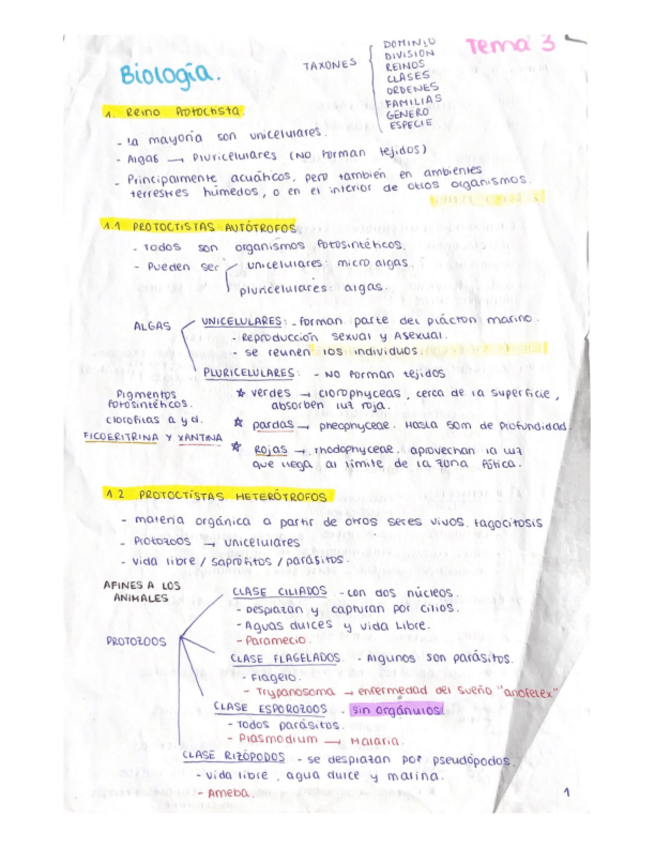 Biología.
TAXONES
DOMINIO
DIVISIÓN
REINOS
CLASES
ORDENES
FAMILIAS
GÉNERO
ESPECIE
Tema 3
1. Reino Protoctista.
- La mayoría son unicelulares.
- Algas → Pluricelulares (NO Forman tejidos)
- Principalmente acuáticos, pero también en ambientes
terrestres húmedos, o en el interior de otros organismos.
1.1 PROTOCTISTAS AUTÓTROFOS.
- Todos son organismos Fotosintéticos.
- Pueden ser
unicelulares: micro algas.
pluricelulares: algas.
ALGAS
UNICELULARES: - Forman parte del plácton marino.
- Reproducción Sexual y Asexual.
- se reunen los individuos.
PLURICELULARES: - NO Forman tejidos
Pigmentos
Fotosintéticos.
clorofilas a y d.
FICOERITRINA Y XANTINA
★ verdes → clorophyceas, cerca de la superficie,
absorben luz roja.
★ pardas → pheophyceae. Hasta 50m de profundidad.
★ Rojas → rhodophyceae. aprovechan la luz
que llega al límite de la zona Fótica.
1.2 PROTOCTÍSTAS HETERÓTROFOS
- materia orgánica a partir de otros seres vivos. Fagocitosis
- Protozoos → Unicelulares
- vida libre / saprófitos / parásitos.
AFINES A LOS
ANIMALES
PROTOZOOS
CLASE CILIADOS - con dos núcleos.
- Desplazan y capturan por cilios.
- Aguas dulces y vida Libre.
- Paramecio.
CLASE FLAGELADOS. - Algunos son parásitos.
- Flagelo.
- Trypanosoma → enfermedad del sueño "anofelex"
CLASE ESPOROZOOS - sin orgánulos.
- Todos parásitos.
- Plasmodium → Malaria.
CLASE RIZÓPODOS - se desplazan por pseudópodos.
- vida libre, agua dulce y marina.
- Ameba.
1